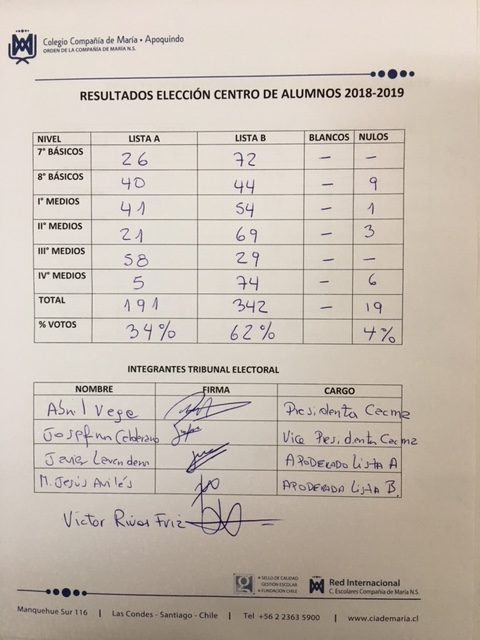 Colegio Compañía de María • Apoquindo
ORDEN DE LA COMPAÑÍA DE MARÍA N.S.
RESULTADOS ELECCIÓN CENTRO DE ALUMNOS 2018-2019
NIVEL LISTA A LISTA B BLANCOS NULOS
7° BÁSICOS 26 72 – –
8° BÁSICOS 40 44 – 9
I° MEDIOS 41 54 – 1
II° MEDIOS 21 69 – 3
III° MEDIOS 58 29 – –
IV° MEDIOS 5 74 – 6
TOTAL 191 342 – 19
% VOTOS 34% 62% 4%
INTEGRANTES TRIBUNAL ELECTORAL
NOMBRE FIRMA CARGO
Abril Vega Presidenta Cecma
Josefina Vice Presidenta Cecma
Javier APODERADO Lista A
M. Jesús Avilés APODERADA Lista B
Victor Rivas
SELLO DE CALIDAD
GESTIÓN ESCOLAR
FUNDACIÓN CHILE
Red Internacional
C. Escolares Compañía de María N.S.
Manquehue Sur 116 | Las Condes - Santiago - Chile | Tel +56 2 2363 5900 | www.ciademaria.cl